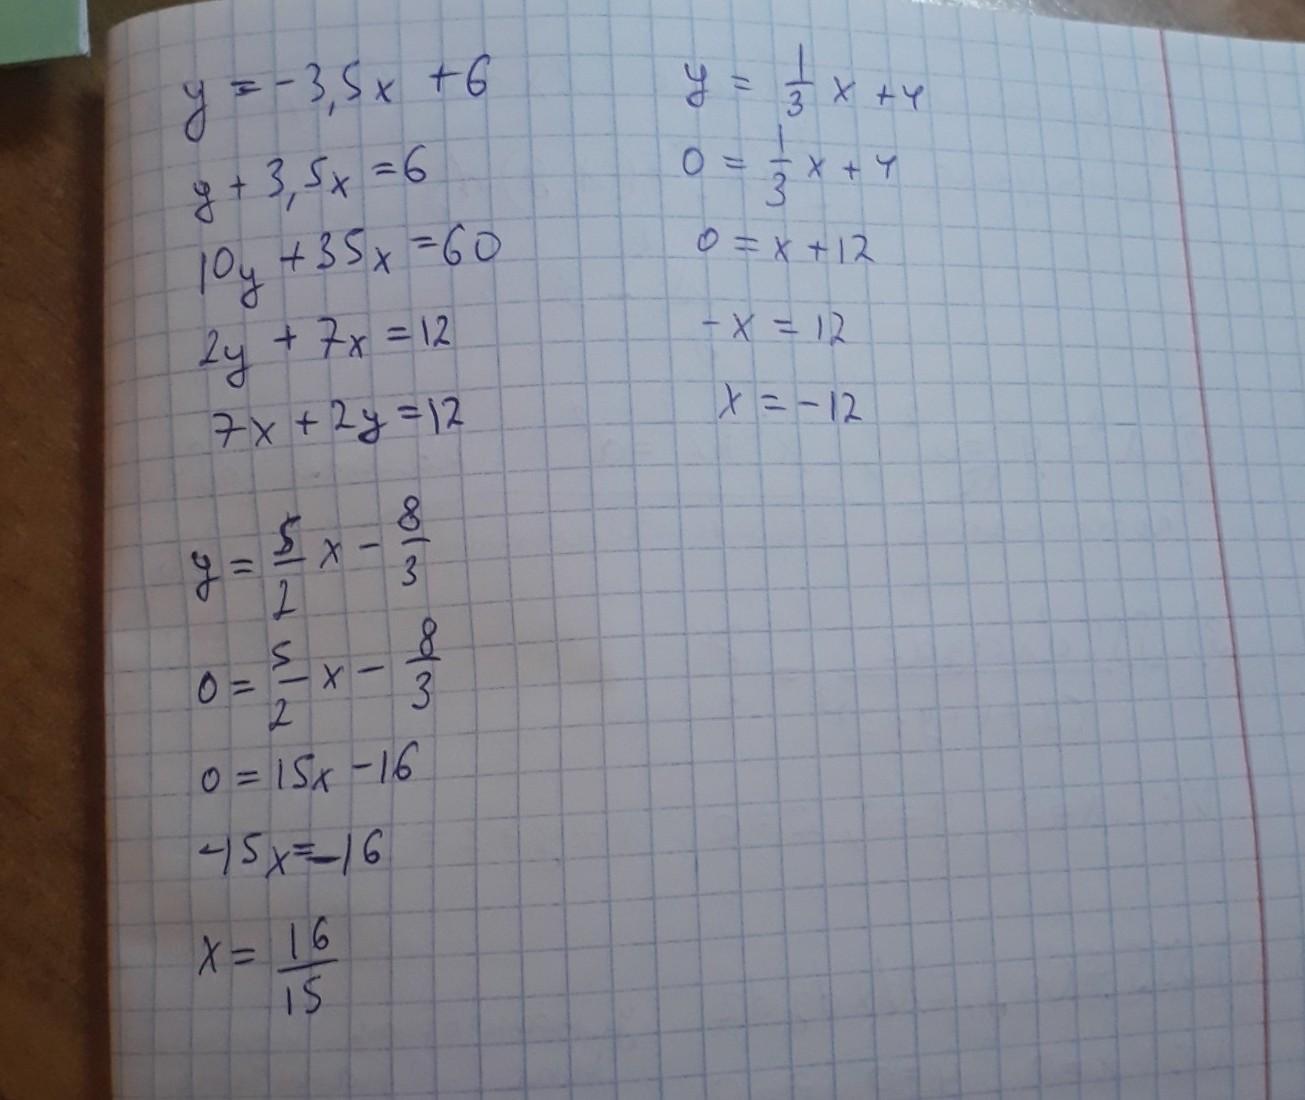 y = -3,5x + 6
y + 3,5x = 6
10y + 35x = 60
2y + 7x = 12
7x + 2y = 12
y = 5/2 x - 8/3
0 = 5/2 x - 8/3
0 = 15x - 16
-15x = -16
x = 16/15
y = 1/3 x + 4
0 = 1/3 x + 4
0 = x + 12
-x = 12
x = -12